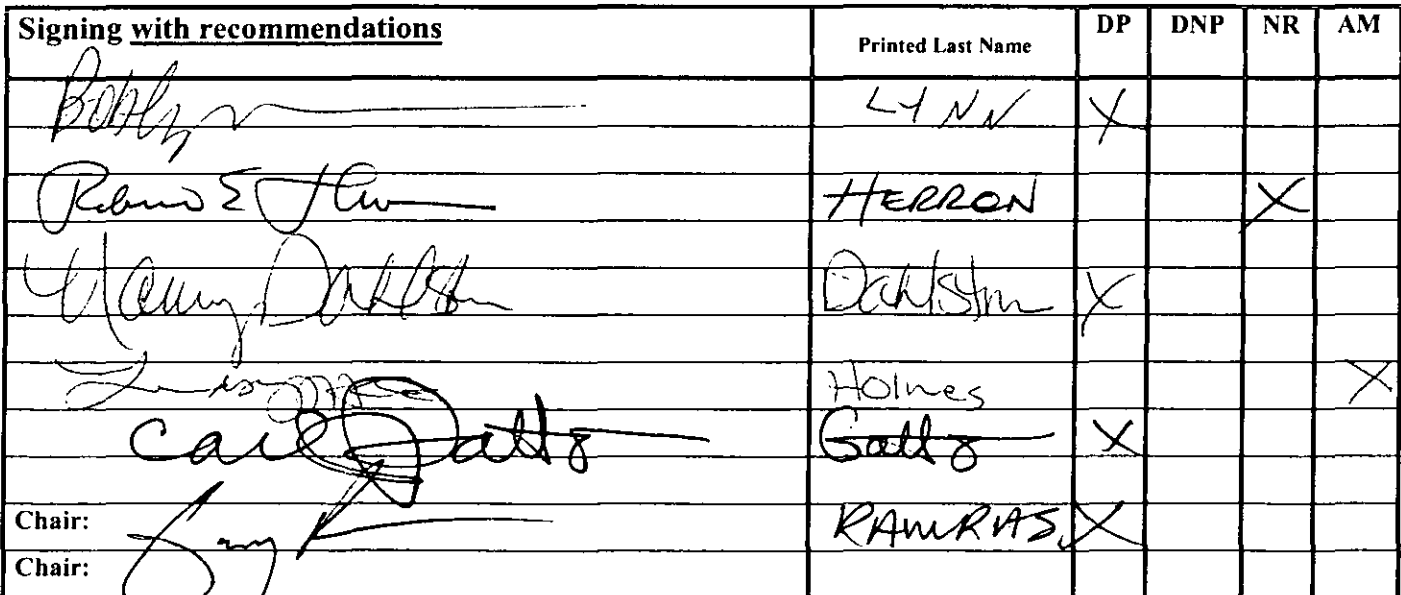 Signing with recommendations Printed Last Name DP DNP NR AM
Bob Lynn LYNN X
HERRON X
Nancy Dahlstrom Dahlstrm X
Holmes X
Carl Gatto Gatto X
Chair: RAMRAS X
Chair: